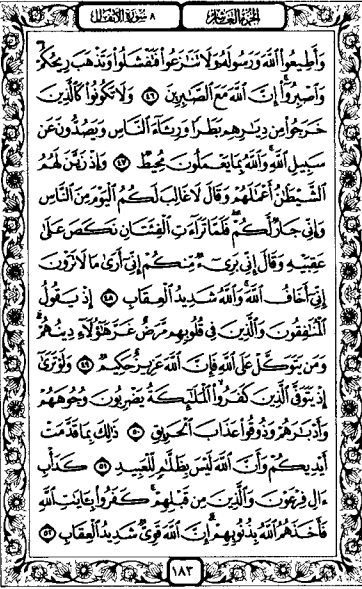 الجزء العاشر ٨ سورة الأنفال
وَأَطِيعُوا۟ ٱللَّهَ وَرَسُولَهُۥ وَلَا تَنَـٰزَعُوا۟ فَتَفْشَلُوا۟ وَتَذْهَبَ رِيحُكُمْ
وَٱصْبِرُوٓا۟ إِنَّ ٱللَّهَ مَعَ ٱلصَّـٰبِرِينَ ٤٦ وَلَا تَكُونُوا۟ كَٱلَّذِينَ
خَرَجُوا۟ مِن دِيَـٰرِهِم بَطَرًا وَرِئَآءَ ٱلنَّاسِ وَيَصُدُّونَ عَن
سَبِيلِ ٱللَّهِ وَٱللَّهُ بِمَا يَعْمَلُونَ مُحِيطٌ ٤٧ وَإِذْ زَيَّنَ لَهُمُ
ٱلشَّيْطَـٰنُ أَعْمَـٰلَهُمْ وَقَالَ لَا غَالِبَ لَكُمُ ٱلْيَوْمَ مِنَ ٱلنَّاسِ
وَإِنِّى جَارٌ لَّكُمْ فَلَمَّا تَرَآءَتِ ٱلْفِئَتَانِ نَكَصَ عَلَىٰ
عَقِبَيْهِ وَقَالَ إِنِّى بَرِىٓءٌ مِّنكُمْ إِنِّىٓ أَرَىٰ مَا لَا تَرَوْنَ
إِنِّىٓ أَخَافُ ٱللَّهَ وَٱللَّهُ شَدِيدُ ٱلْعِقَابِ ٤٨ إِذْ يَقُولُ
ٱلْمُنَـٰفِقُونَ وَٱلَّذِينَ فِى قُلُوبِهِم مَّرَضٌ غَرَّ هَـٰٓؤُلَآءِ دِينُهُمْ
وَمَن يَتَوَكَّلْ عَلَى ٱللَّهِ فَإِنَّ ٱللَّهَ عَزِيزٌ حَكِيمٌ ٤٩ وَلَوْ تَرَىٰٓ
إِذْ يَتَوَفَّى ٱلَّذِينَ كَفَرُوا۟ ٱلْمَلَـٰٓئِكَةُ يَضْرِبُونَ وُجُوهَهُمْ
وَأَدْبَـٰرَهُمْ وَذُوقُوا۟ عَذَابَ ٱلْحَرِيقِ ٥٠ ذَٰلِكَ بِمَا قَدَّمَتْ
أَيْدِيكُمْ وَأَنَّ ٱللَّهَ لَيْسَ بِظَلَّـٰمٍ لِّلْعَبِيدِ ٥١ كَدَأْبِ
ءَالِ فِرْعَوْنَ وَٱلَّذِينَ مِن قَبْلِهِمْ كَفَرُوا۟ بِـَٔايَـٰتِ ٱللَّهِ
فَأَخَذَهُمُ ٱللَّهُ بِذُنُوبِهِمْ إِنَّ ٱللَّهَ قَوِىٌّ شَدِيدُ ٱلْعِقَابِ ٥٢
١٨٣